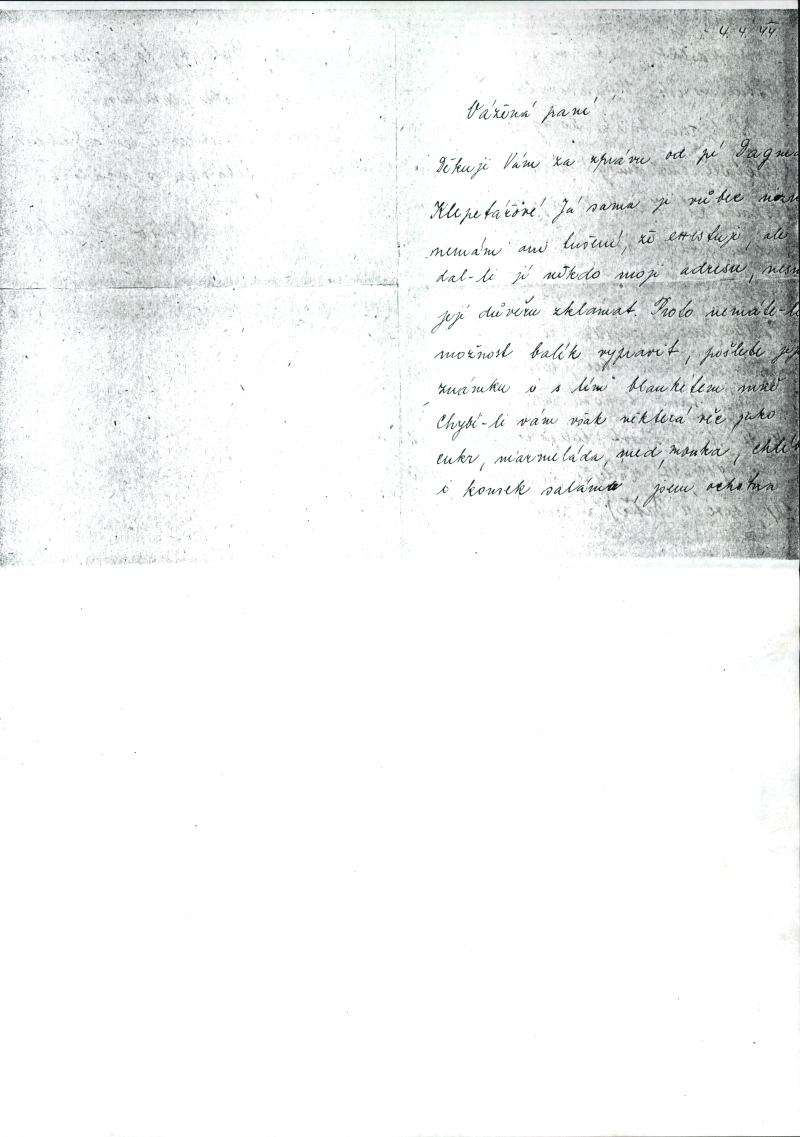 4. 4. 44
Vážená paní!
Děkuji Vám za zprávu od pí Dagma
Klepetářové! Já sama ji vůbec nezn
nemám ani tušení, že existuje, ale
dal-li jí někdo moji adresu, nesm
její důvěru zklamat. Proto nemáte-li
možnost balík vypravit, pošlete její
známku i s tím blanketem mně
Chybí-li vám však některá věc jako
cukr, marmeláda, med, mouka, chléb
i kousek salámu, jsem ochotna